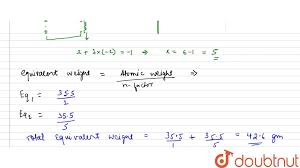 x + 3×(-2) = -1 ⇒ x = 6-1 = 5
Equivalent weight = Atomic weight / n-factor ⇒
Eq₁ = 35.5 / 1
Eq₂ = 35.5 / 5
Total Equivalent weight = 35.5 / 1 + 35.5 / 5 = 42.6 gm
doubtnut